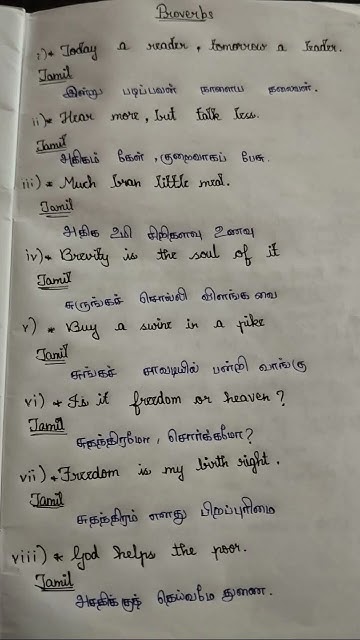 Proverbs
i)* Today a reader, tomorrow a leader.
Tamil
இன்று படிப்பவன் நாளைய தலைவன்.
ii)* Hear more, but talk less.
Tamil
அதிகம் கேள், குறைவாகப் பேசு.
iii)* Much bran little meal.
Tamil
அதிக உமி சிறிதளவு உணவு
iv)* Brevity is the soul of it
Tamil
சுருங்கச் சொல்லி விளங்க வை
v) * Buy a swine in a pike
Tamil
சுங்கச் சாவடியில் பன்றி வாங்கு
vi) * Is it freedom or heaven?
Tamil
சுதந்திரமோ, சொர்க்கமோ?
vii)* Freedom is my birth right.
Tamil
சுதந்திரம் எனது பிறப்புரிமை
viii)* God helps the poor.
Tamil
அகதிக்குத் தெய்வமே துணை.